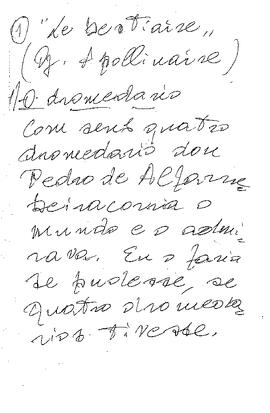 ① "Le bestiaire"
(G. Apollinaire)
1) O dromedario
Com seus quatro
dromedario don
Pedro de Alfarru
beira corria o
mundo e o admi
rava. Eu o faria
se pudesse, se
quatro dromeda
rios tivesse.